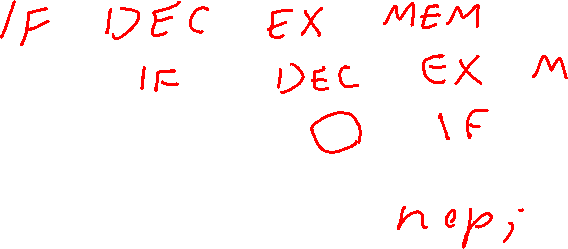 IF DEC EX MEM
IF DEC EX M
IF
nop;